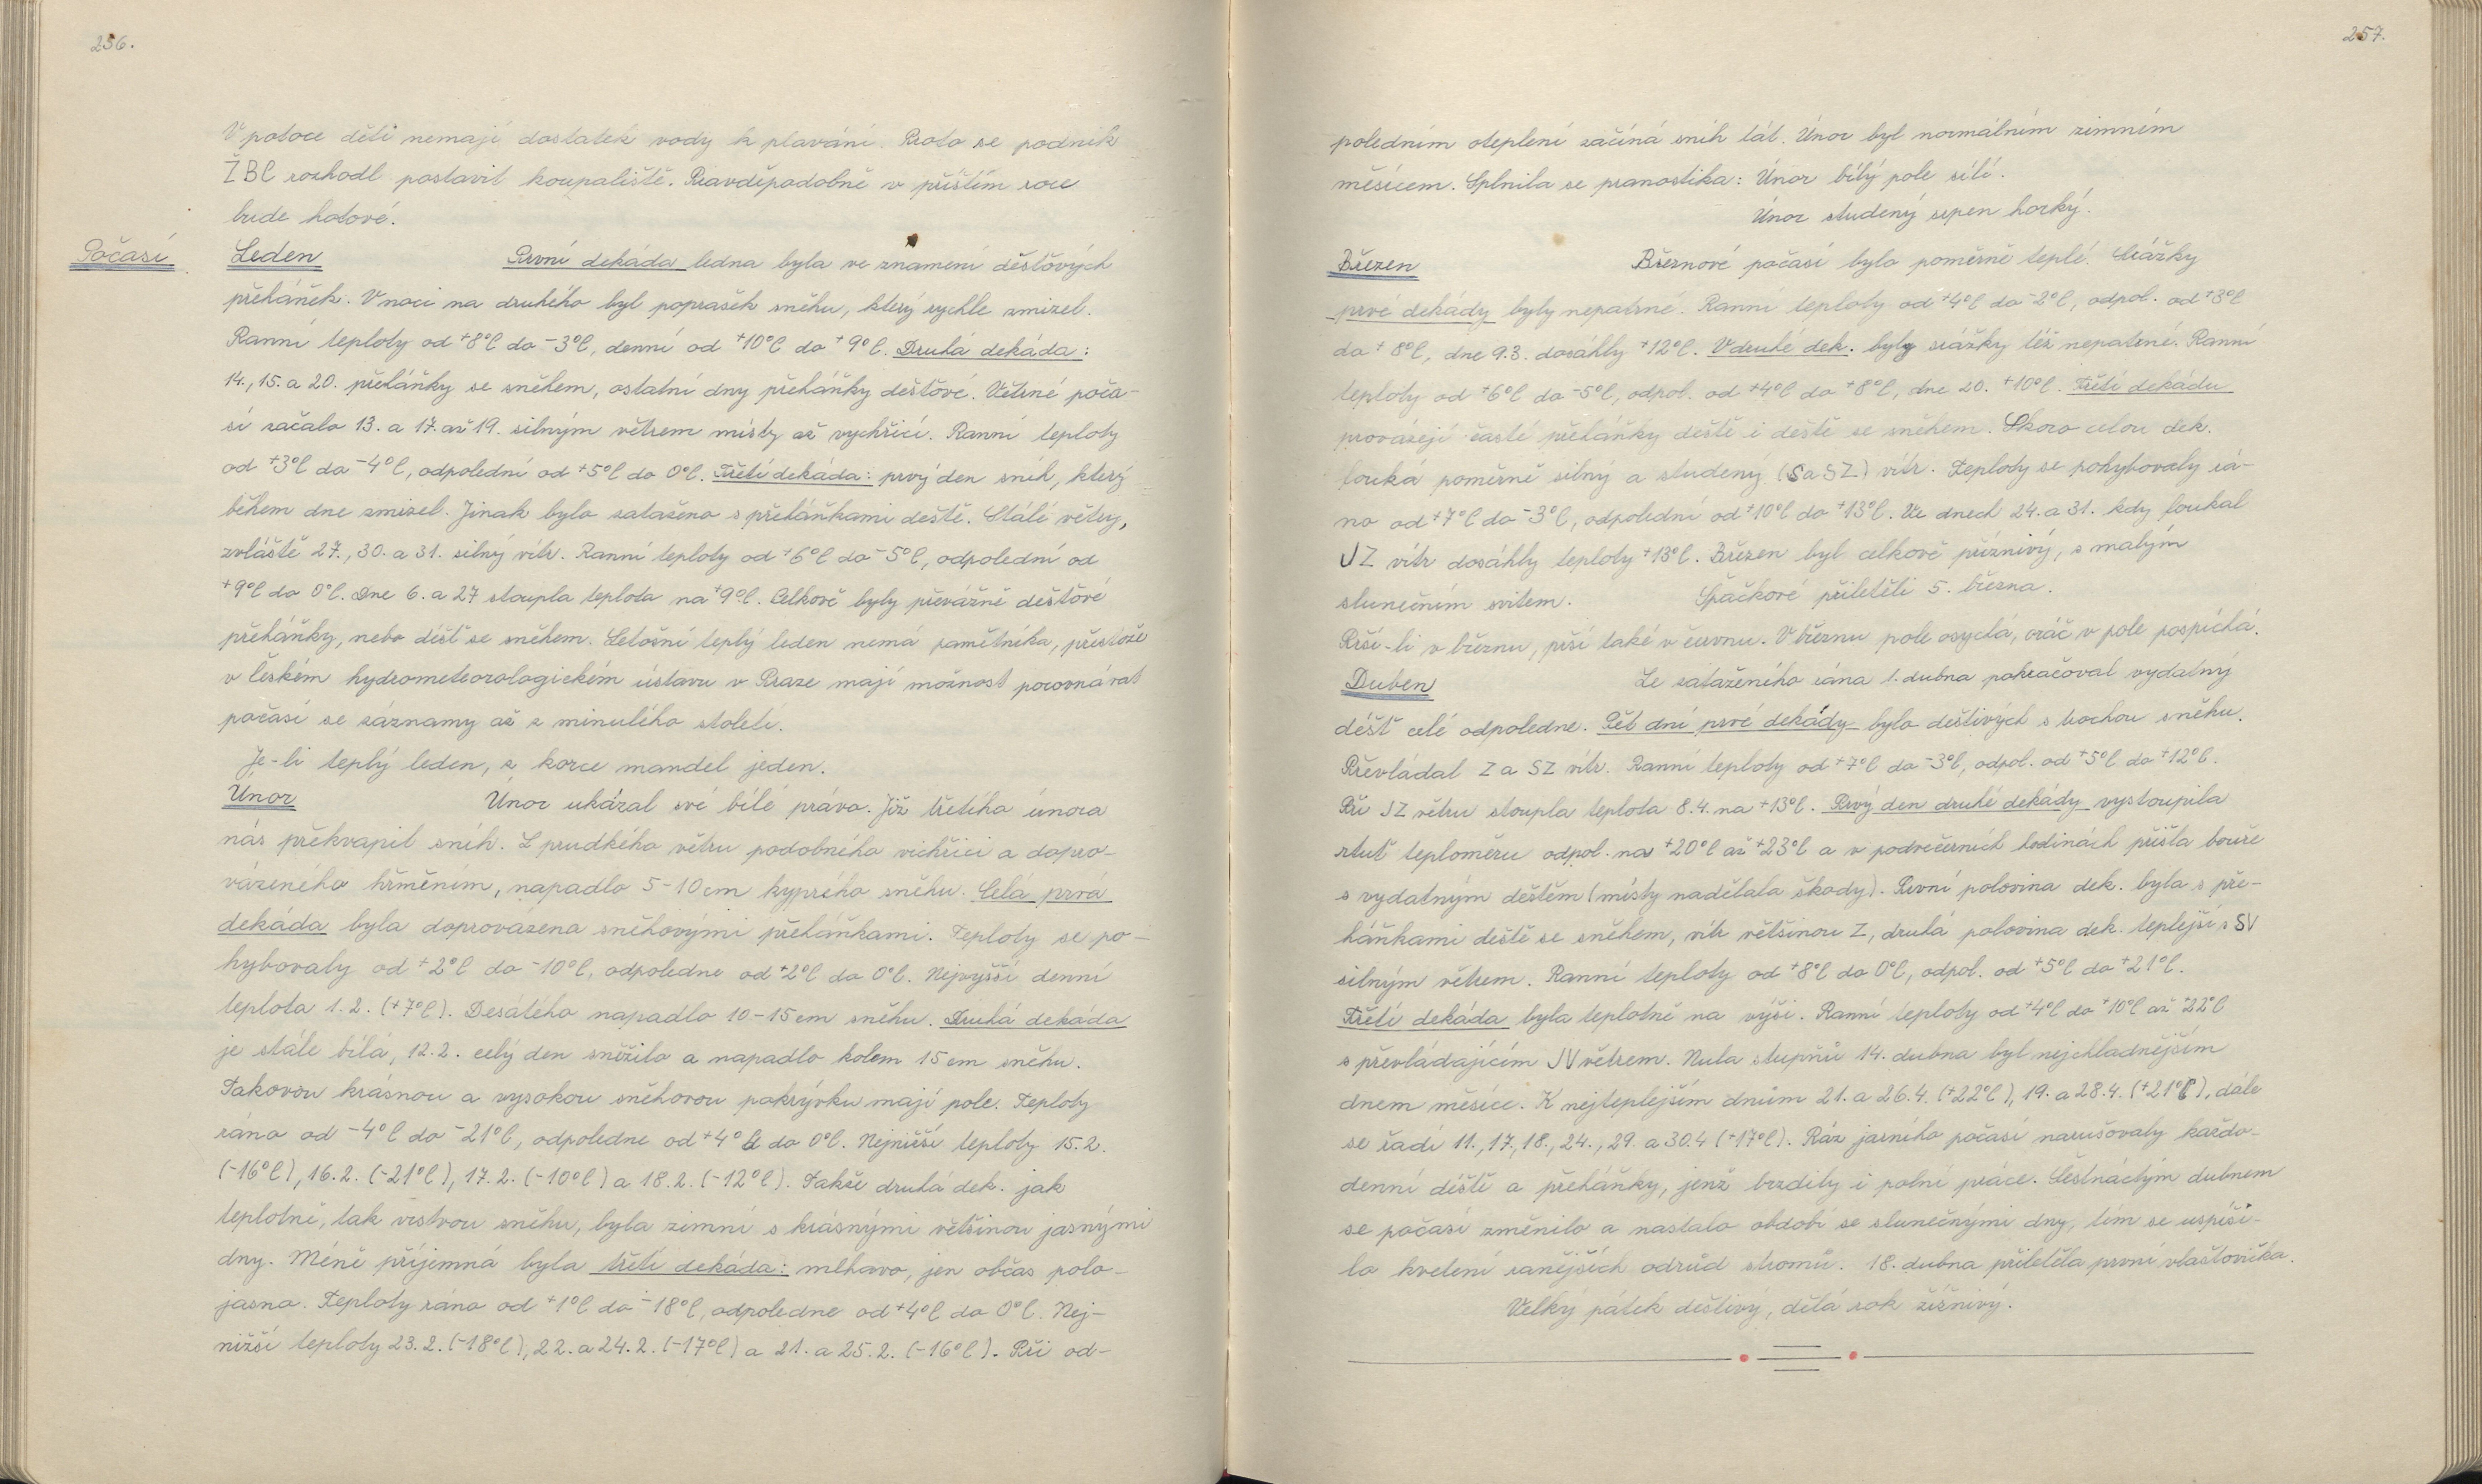 256.
V potoce děti nemají dostatek vody k plavání. Proto se podnik
ŽBC rozhodl postavit koupaliště. Pravděpodobně v příštím roce
bude hotové.
Počasí
Leden První dekáda ledna byla ve znamení dešťových
přeháněk. V noci na druhého byl poprašek sněhu, který rychle zmizel.
Ranní teploty od +8°C do -3°C, denní od +10°C do +9°C. Druhá dekáda:
14., 15. a 20. přeháňky se sněhem, ostatní dny přeháňky dešťové. Větrné poča-
sí začalo 13. a 17. až 19. silným větrem místy až vychřicí. Ranní teploty
od +3°C do -4°C, odpolední od +5°C do 0°C. Třetí dekáda: prvý den sníh, který
během dne zmizel. Jinak bylo zataženo s přeháňkami deště. Stálé větry,
zvláště 27., 30. a 31. silný vítr. Ranní teploty od +6°C do -5°C, odpolední od
+9°C do 0°C. Dne 6. a 27 stoupla teplota na +9°C. Celkově byly převážně dešťové
přeháňky, nebo déšť se sněhem. Letošní teplý leden nemá pamětníka, přestože
v Českém hydrometeorologickém ústavu v Praze mají možnost porovnávat
počasí se záznamy až z minulého století.
Je-li teplý leden, z korce mandel jeden.
Únor Únor ukázal své bílé právo. Již třetího února
nás překvapil sníh. Z prudkého větru podobného vichřici a dopro-
vázeného hřměním, napadlo 5-10 cm kyprého sněhu. Celá prvá
dekáda byla doprovázena sněhovými přeháňkami. Teploty se po-
hybovaly od +2°C do -10°C, odpoledne od +2°C do 0°C. Nejvyšší denní
teplota 1.2. (+7°C). Desátého napadlo 10-15 cm sněhu. Druhá dekáda
je stále bílá, 12.2. celý den sněžilo a napadlo kolem 15 cm sněhu.
Takovou krásnou a vysokou sněhovou pokrývku mají pole. Teploty
ráno od -4°C do -21°C, odpoledne od +4°C do 0°C. Nejnižší teploty 15.2.
(-16°C), 16.2. (-21°C), 17.2. (-10°C) a 18.2. (-12°C). Takže druhá dek. jak
teplotně, tak vrstvou sněhu, byla zimní s krásnými většinou jasnými
dny. Méně příjemná byla třetí dekáda: mlhavo, jen občas polo-
jasno. Teploty ráno od +1°C do -18°C, odpoledne od +4°C do 0°C. Nej-
nižší teploty 23.2. (-18°C), 22. a 24.2. (-17°C) a 21. a 25.2. (-16°C). Při od-
257.
poledním oteplení začíná sníh tát. Únor byl normálním zimním
měsícem. Splnila se pranostika: Únor bílý pole sílí.
Únor studený srpen horký.
Březen Březnové počasí bylo poměrně teplé. Srážky
prvé dekády byly nepatrné. Ranní teploty od +4°C do -2°C, odpol. od +3°C
do +8°C, dne 9.3. dosáhly +12°C. V druhé dek. byly srážky též nepatrné. Ranní
teploty od +6°C do -5°C, odpol. od +4°C do +8°C, dne 20. +10°C. Třetí dekádu
provázejí časté přeháňky deště i deště se sněhem. Skoro celou dek.
fouká poměrně silný a studený (S a SZ) vítr. Teploty se pohybovaly rá-
no od +7°C do -3°C, odpolední od +10°C do +13°C. Ve dnech 24. a 31. kdy foukal
JZ vítr dosáhly teploty +13°C. Březen byl celkově příznivý, s malým
slunečním svitem. Špačkové přiletěli 5. března.
Prší-li v březnu, prší také v červnu. V březnu pole osychá, oráč v pole pospíchá.
Duben Ze zataženého rána 1. dubna pokračoval vydatný
déšť celé odpoledne. Pět dní prvé dekády bylo deštivých s trochou sněhu.
Převládal Z a SZ vítr. Ranní teploty od +7°C do -3°C, odpol. od +5°C do +12°C.
Při JZ větru stoupla teplota 8.4. na +13°C. Prvý den druhé dekády vystoupila
rtuť teploměru odpol. na +20°C až +23°C a v podvečerních hodinách přišla bouře
s vydatným deštěm (místy nadělala škody). První polovina dek. byla s pře-
háňkami deště se sněhem, vítr většinou Z, druhá polovina dek. teplejší s SV
silným větrem. Ranní teploty od +8°C do 0°C, odpol. od +5°C do +21°C.
Třetí dekáda byla teplotně na výši. Ranní teploty od +4°C do +10°C až +22°C
s převládajícím JV větrem. Nula stupňů 14. dubna byl nejchladnějším
dnem měsíce. K nejteplejším dnům 21. a 26.4. (+22°C), 19. a 28.4. (+21°C), dále
se řadí 11., 17., 18., 24., 29. a 30.4 (+17°C). Ráz jarního počasí narušovaly každo-
denní deště a přeháňky, jenž brzdily i polní práce. Šestnáctým dubnem
se počasí změnilo a nastalo období se slunečnými dny, tím se uspíši-
lo kvetení ranějších odrůd stromů. 18. dubna přiletěla první vlaštovička.
Velký pátek deštivý, dělá rok žíznivý.